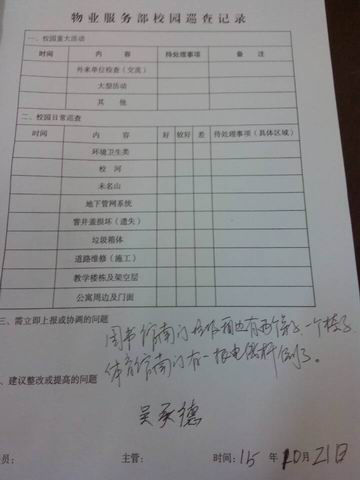 物业服务部校园巡查记录
一、校园重大活动
时间 内容 待处理事项 备注
外来单位检查（交流）
大型活动
其他
二、校园日常巡查
时间 内容 好 较好 差 待处理事项（具体区域）
环境卫生类
校河
未名山
地下管网系统
窨井盖损坏（遗失）
垃圾箱体
道路维修（施工）
教学楼栋及架空层
公寓周边及门面
三、需立即上报或协调的问题
图书馆南门垃圾箱边有两个袋子一个桶子
体育馆南门有一根电线杆倒了。
、建议整改或提高的问题
吴承德
员： 主管： 时间：15年10月21日